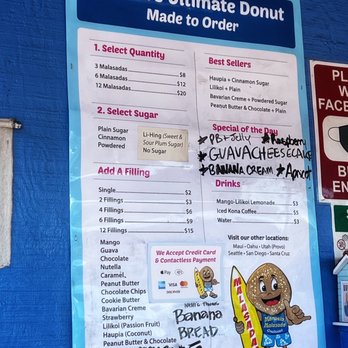 Ultimate Donut
Made to Order
1. Select Quantity
3 Malasadas $8
6 Malasadas $12
12 Malasadas $20
2. Select Sugar
Plain Sugar
Cinnamon
Powdered
Li-Hing (Sweet &
Sour Plum Sugar)
No Sugar
Add A Filling
Single $2
2 Fillings $3
4 Fillings $6
6 Fillings $9
12 Fillings $15
Mango
Guava
Chocolate
Nutella
Caramel
Peanut Butter
Chocolate Chips
Cookie Butter
Bavarian Creme
Strawberry
Lilikoi (Passion Fruit)
Haupia (Coconut)
Peanut Butter
& Chocolate
Best Sellers
Haupia + Cinnamon Sugar
Lilikoi + Plain
Bavarian Creme + Powdered Sugar
Peanut Butter & Chocolate + Plain
Special of the Day
*PB+Jelly *Raspberry
*GUAVACHEESECAKE
*BANANA CREAM *Apricot
Drinks
Mango-Lilikoi Lemonade $3
Iced Kona Coffee $5
Water $3
Visit our other locations:
Maui - Oahu - Utah (Provo)
Seattle - San Diego - Santa Cruz
We Accept Credit Card
& Contactless Payment
Pay
VISA
DISCOVER
Banana
BREAD
MALASADAS
PL
W
FACE
B
EN